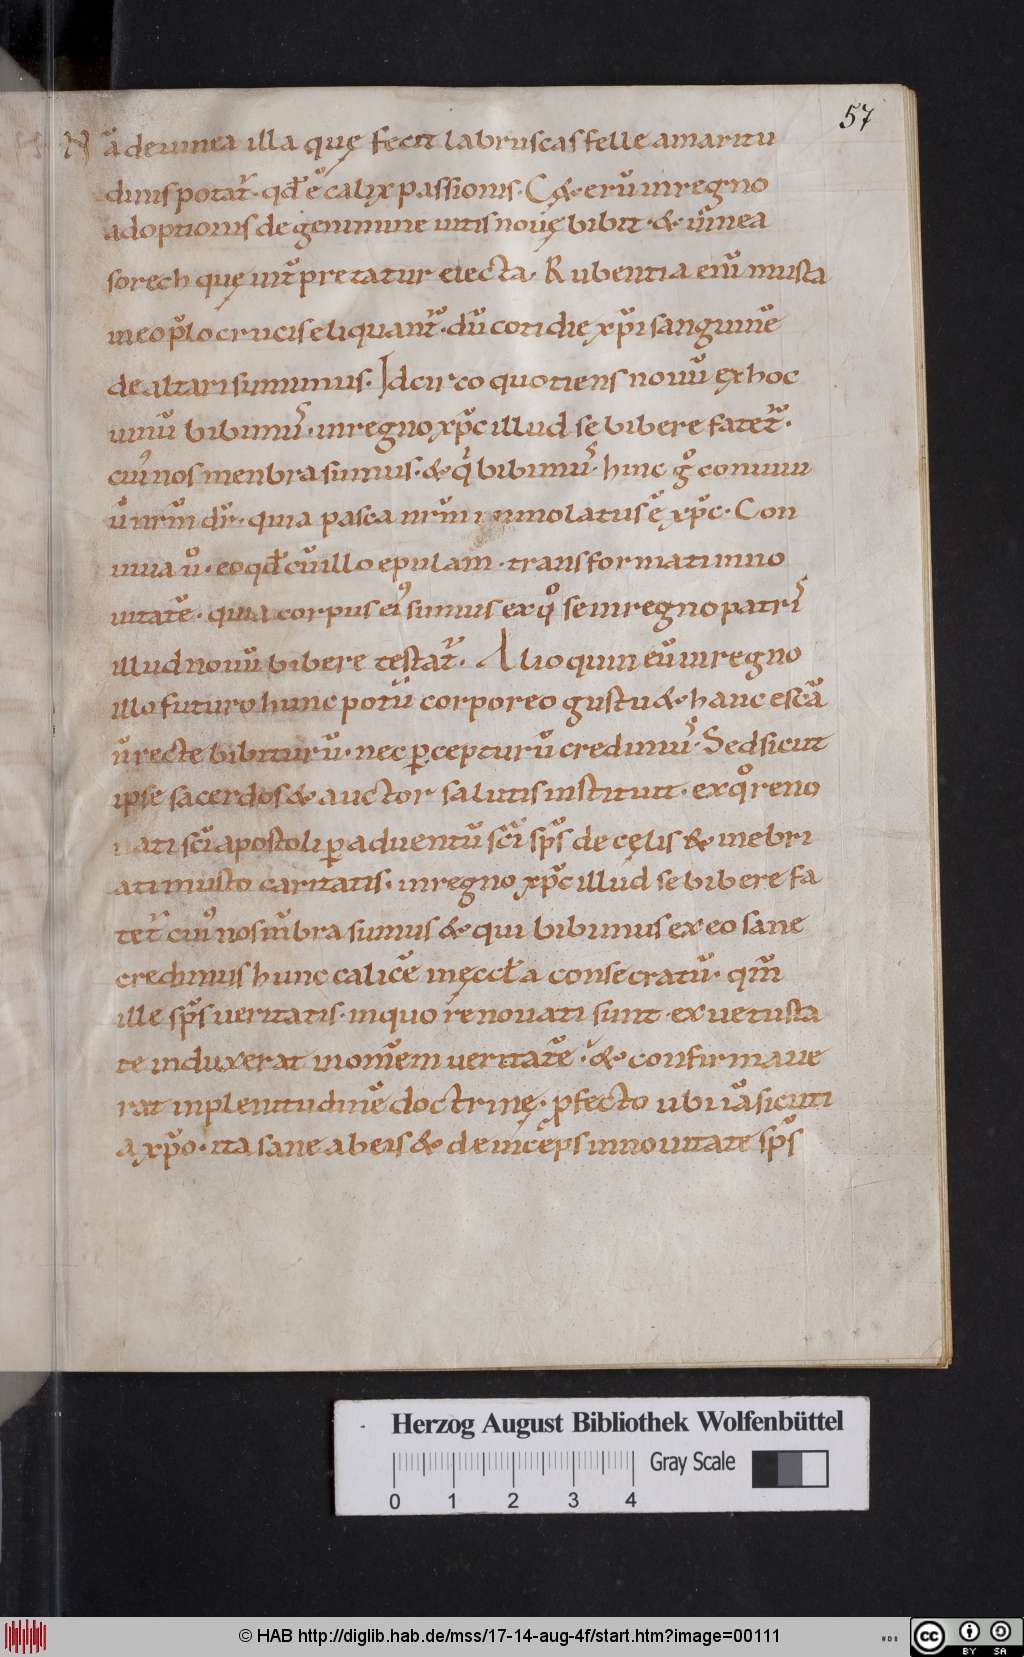 57
Nā de uinea illa quę fecit labruscas felle amaritu
dinis potat᷑· qđ ē calix passionis· Cet̄erū in regno
adoptionis de genimine uitis nouę bibit· & uīnea
sorech quę int̄pretatur electa· Rubentia eni᷑ musta
in eo p̄lo crucis eliquant᷑· dū cotidie xp̄i sanguinē
de altari sumimus· Idcirco quotiens nouū ex hoc
uinū bibimꝰ· in regno xp̄c illud se bibere fatet᷑·
cuiꝰ nos menbra sumus· & qi bibimꝰ· hinc gͦ conuiuii
ū nrm̄ dr̄· quia pasca nrm̄ immolatus ē xp̄c· Con
uiua uͦ· eo qđ cū illo epulam· transformati in no
uitatē· quia corpus eiꝰ sumus ex qͦ se in regno patrıs
illud nouū bibere testat᷑· Alioquin eū in regno
illo futuro hunc potū corporeo gustu & hanc escā
ū recte bibiturū· nec p̱cepturū credimꝰ· Sed sicut
ipse sacerdos & auctor salutis instituit· ex qͦ reno
uati sc̄i apostoli p̱ aduentū sc̄i sp̄s de cęlis & inebri
ati musto caritatis· in regno xp̄c illud se bibere fa
tet᷑ cuiꝰ nos mb̄ra sumus & qui bibimus ex eo sane
credimus hunc calicē in ęccła consecratū· qm̄
ille sp̄s ueritatis· in quo renouati sunt· ex uetusta
te induxerat in omem̄ ueritatē· & confirmaue
rat in plenitudinē doctrinę· p̱fecto ubi iā sicuti
a xp̄o· ita sane ab eis & deinceps in nouitate sp̄s
Herzog August Bibliothek Wolfenbüttel
Gray Scale
0 1 2 3 4
© HAB http://diglib.hab.de/mss/17-14-aug-4f/start.htm?image=00111
WDB
cc BY SA